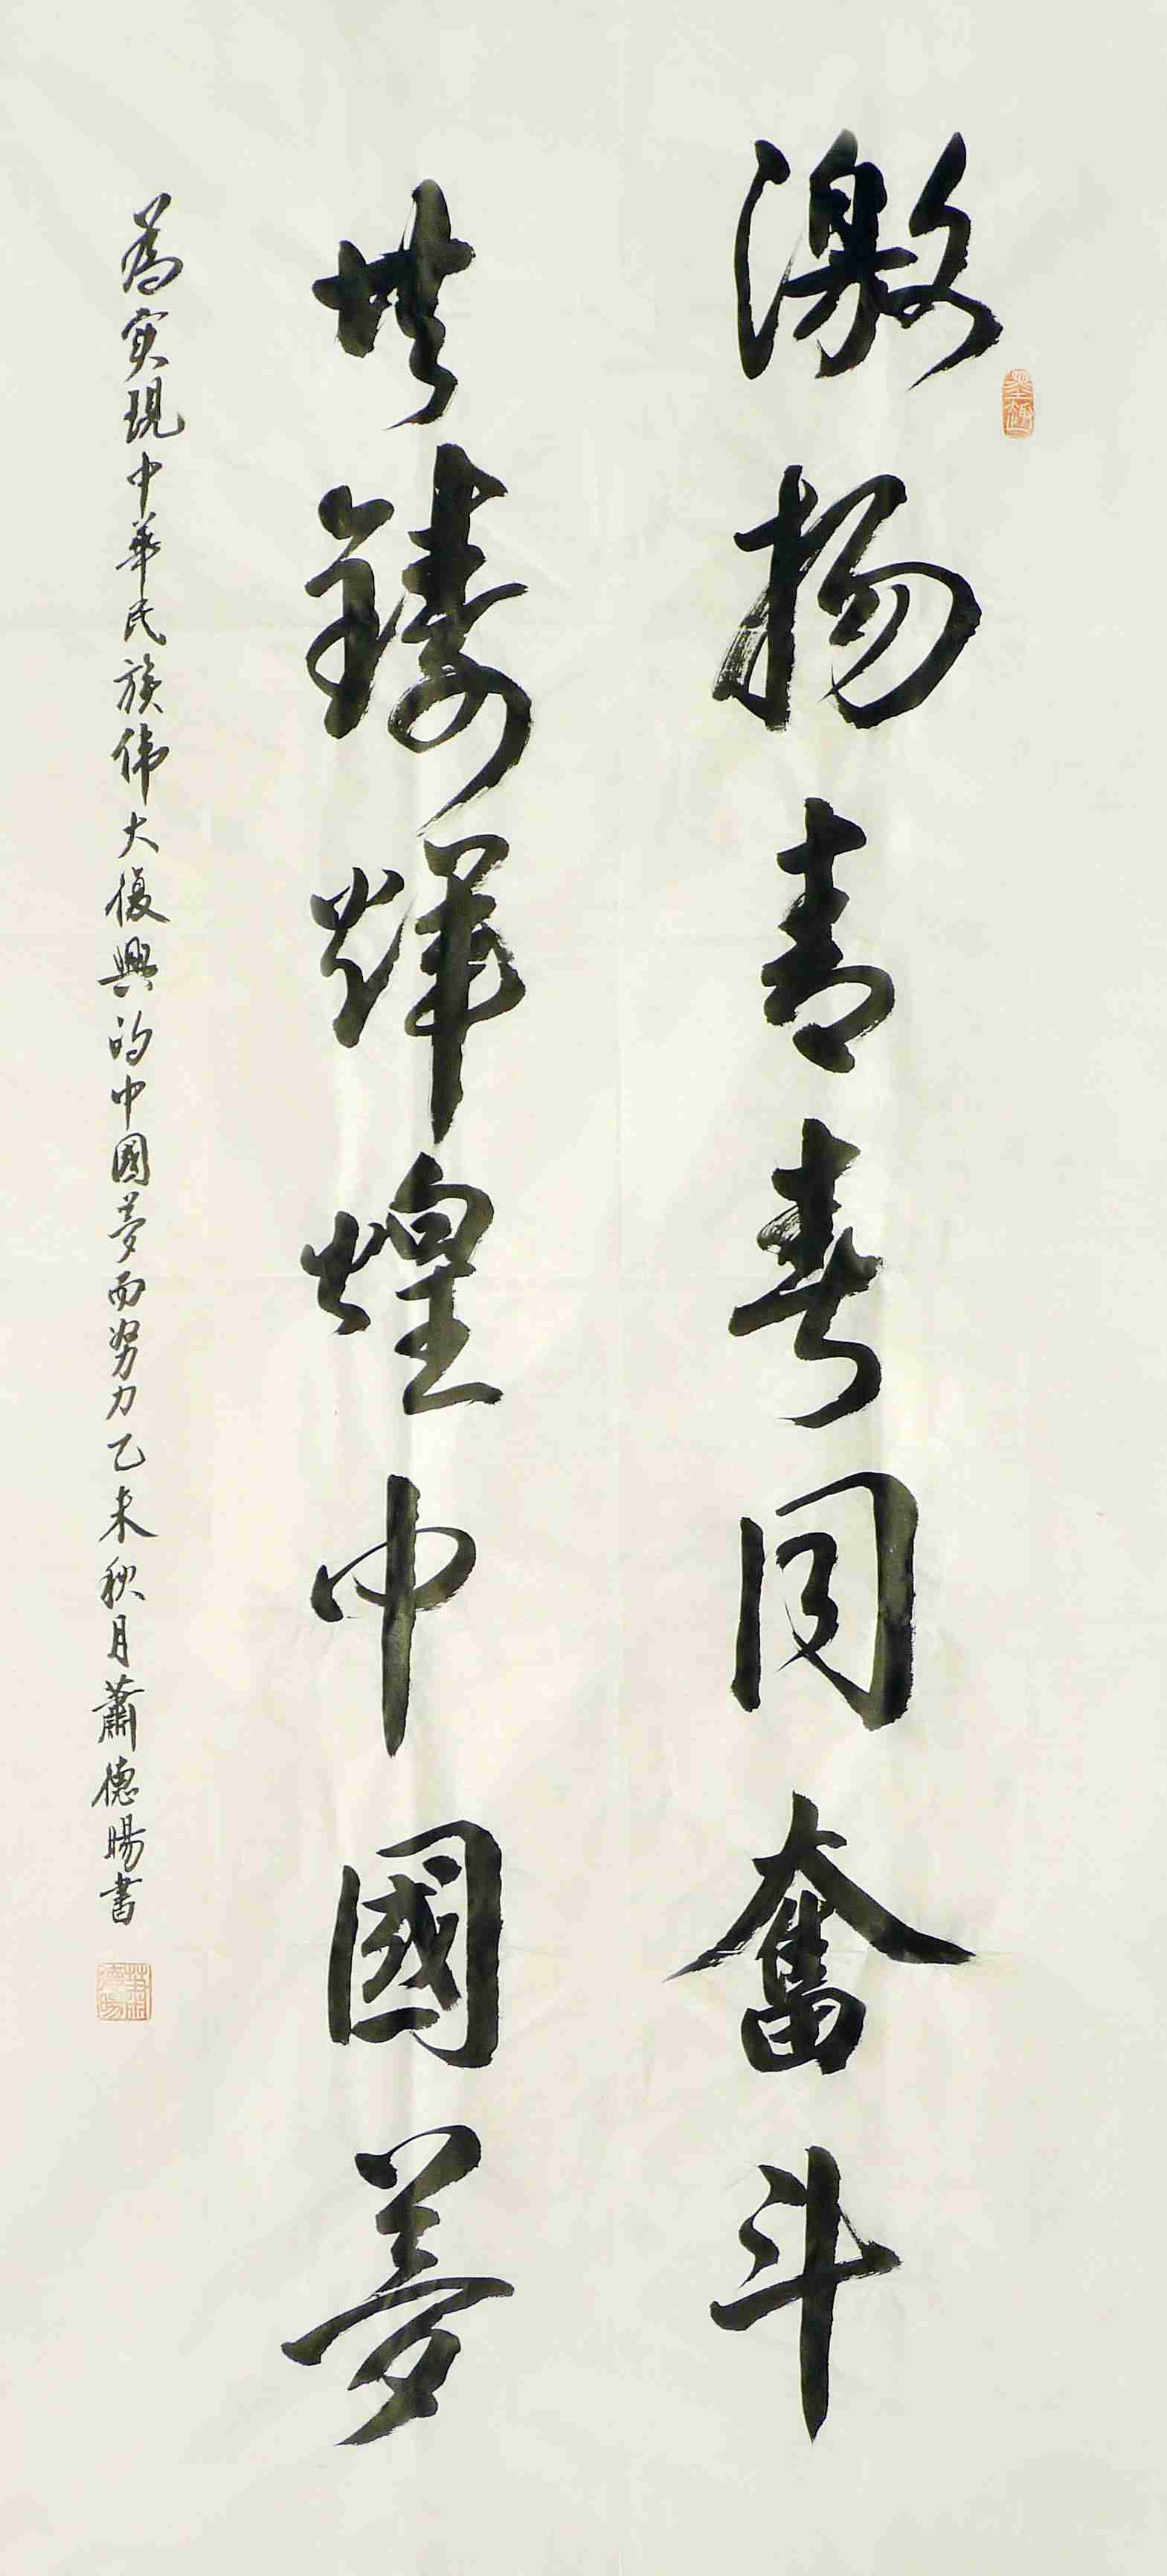 激揚青春同奮斗
共鑄輝煌中國夢
為实現中華民族偉大復興的中國夢而努力乙未秋月蕭德暘書
蕭德暘